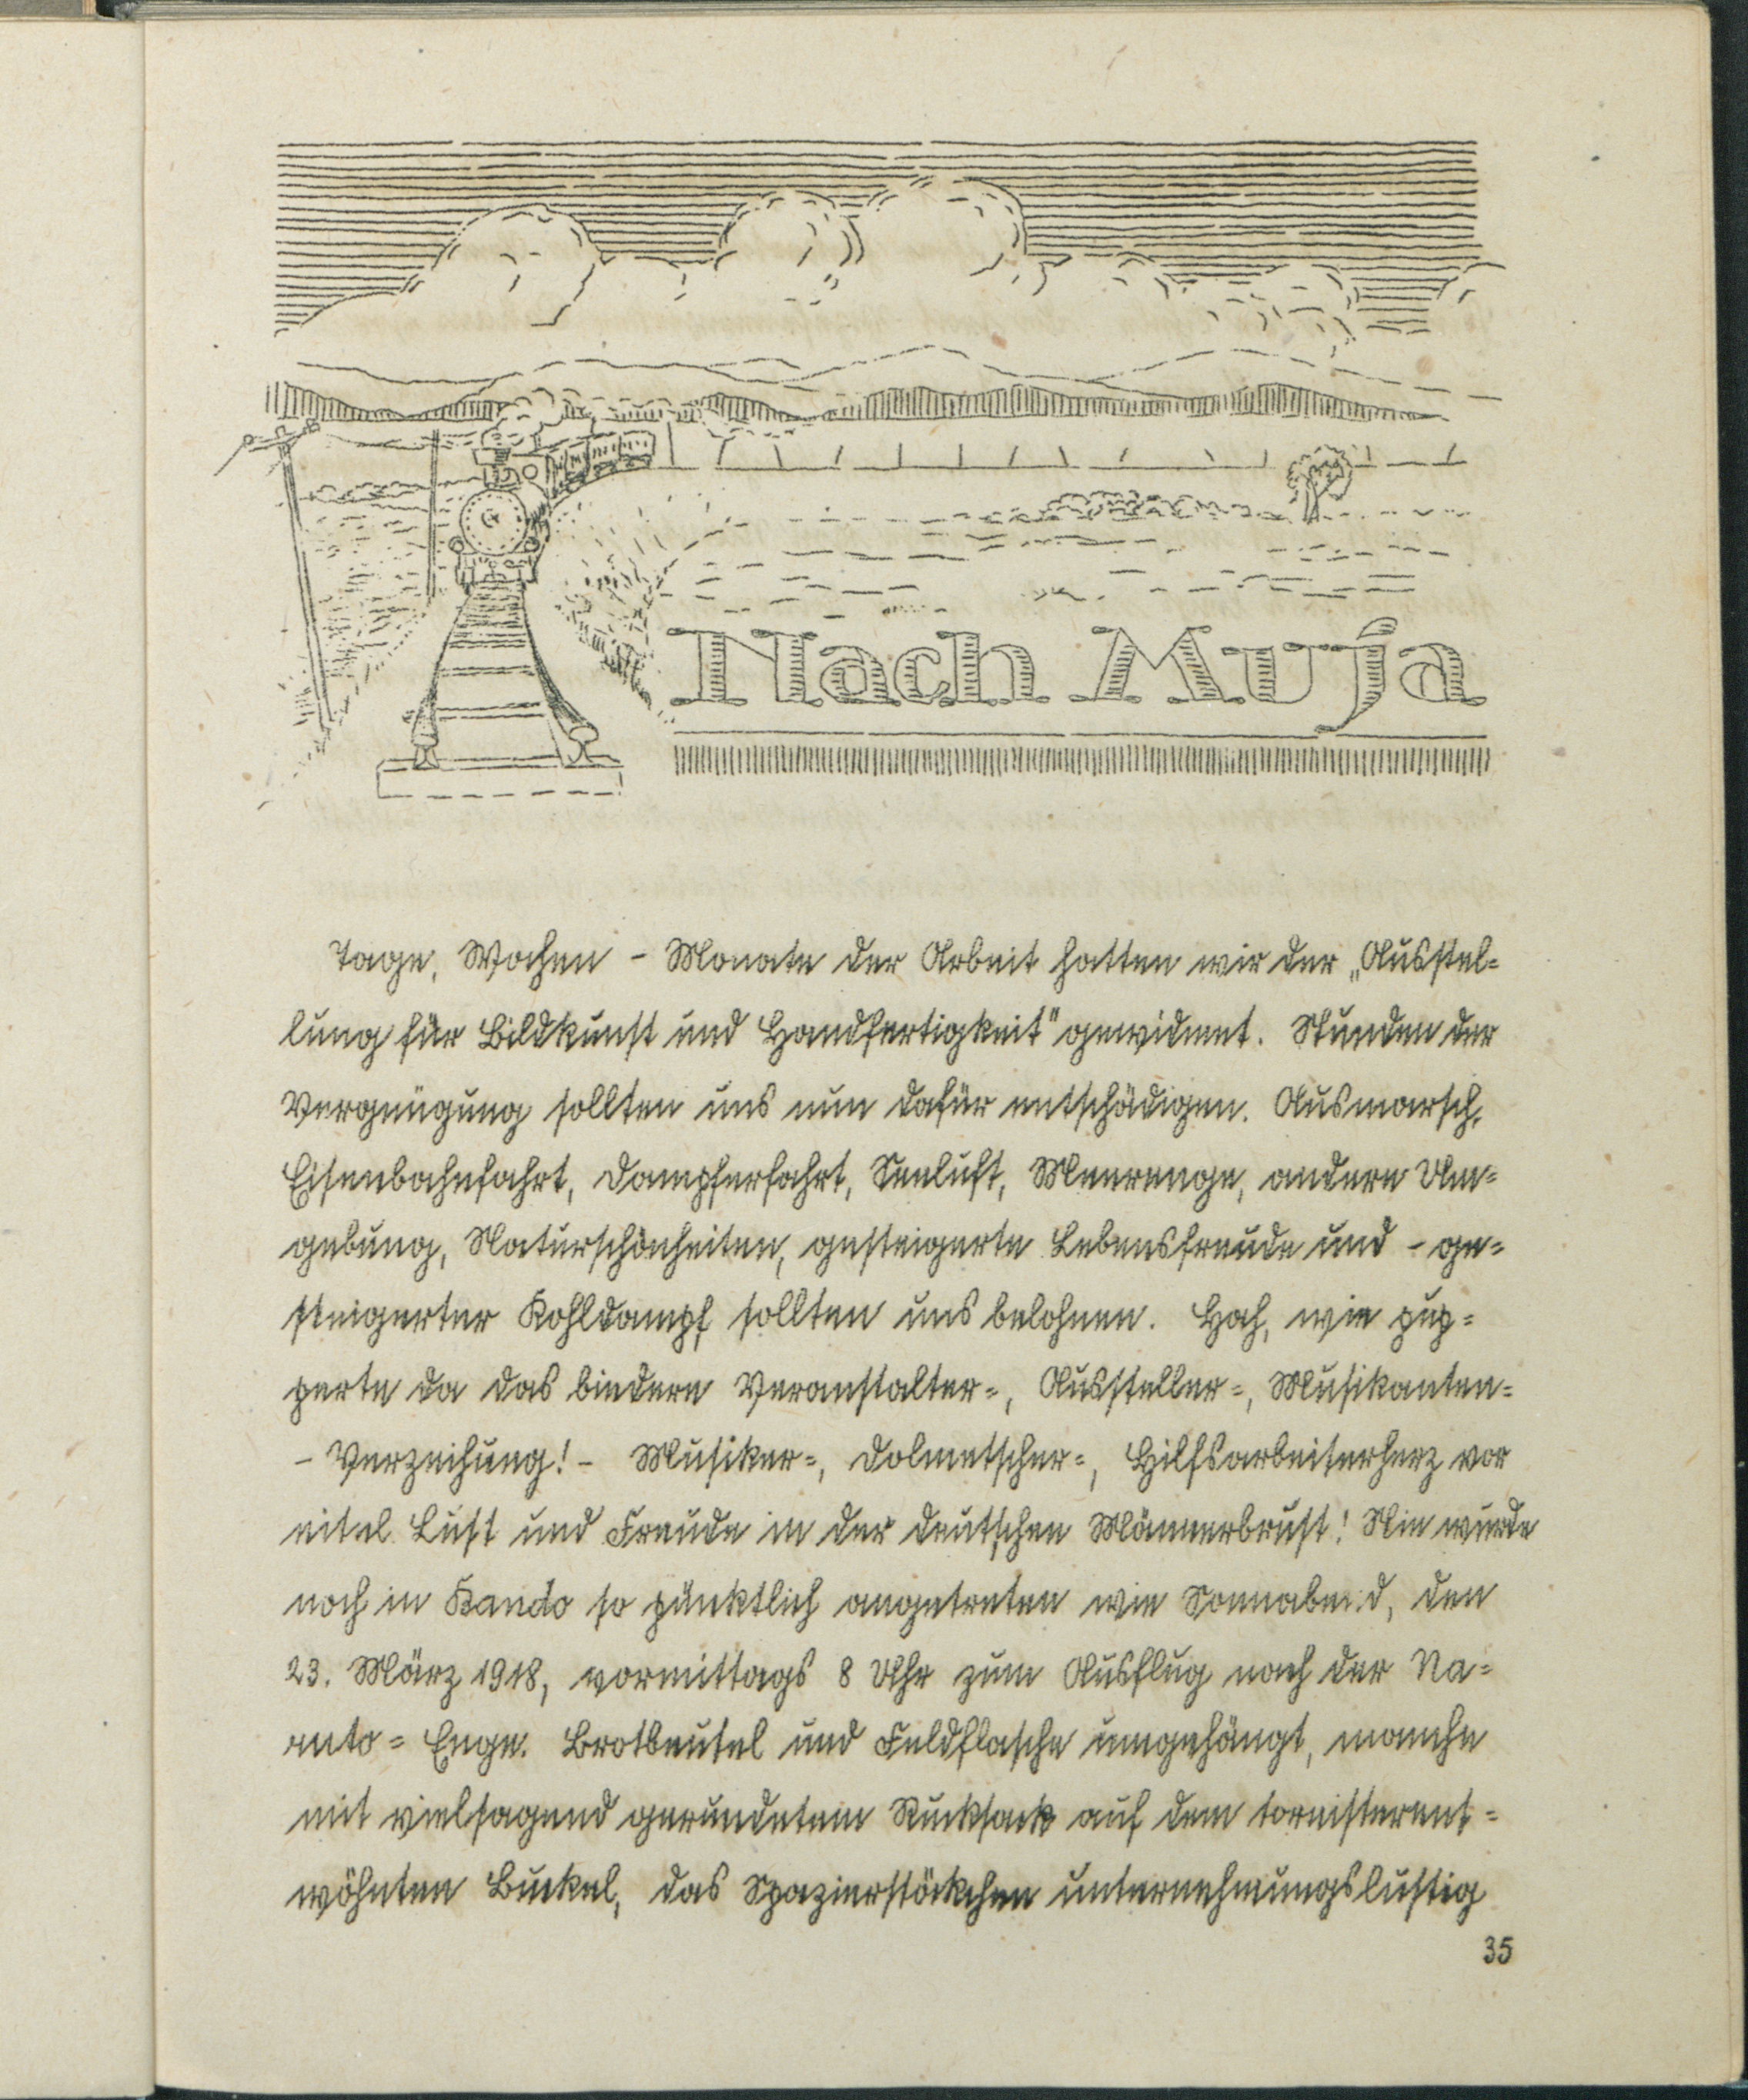 Nach Muja
Tage, Wochen - Monate der Arbeit hatten wir der „Ausstel=
lung für Bildkunst und Handfertigkeit" gewidmet. Stunden der
Vergnügung sollten uns nun dafür entschädigen. Ausmarsch,
Eisenbahnfahrt, Dampferfahrt, Seeluft, Meerenge, andere Um=
gebung, Naturschönheiten, gesteigerte Lebensfreude und - ge=
steigerter Kohldampf sollten uns belohnen. Hah, wie pup=
perte da das biedere Veranstalter=, Aussteller=, Musikanten=
- Verzeihung! - Musiker=, Dolmetscher=, Hilfsarbeiterherz vor
eitel Lust und Freude in der deutschen Männerbrust! Nie wurde
noch in Bando so pünktlich angetreten wie Sonnabend, den
23. März 1918, vormittags 8 Uhr zum Ausflug nach der Na=
ruto= Enge. Brotbeutel und Feldflasche umgehängt, manche
mit vielsagend gerundetem Rucksack auf dem tornisterent=
wöhnten Buckel, das Spazierstöckchen unternehmungslustig
35